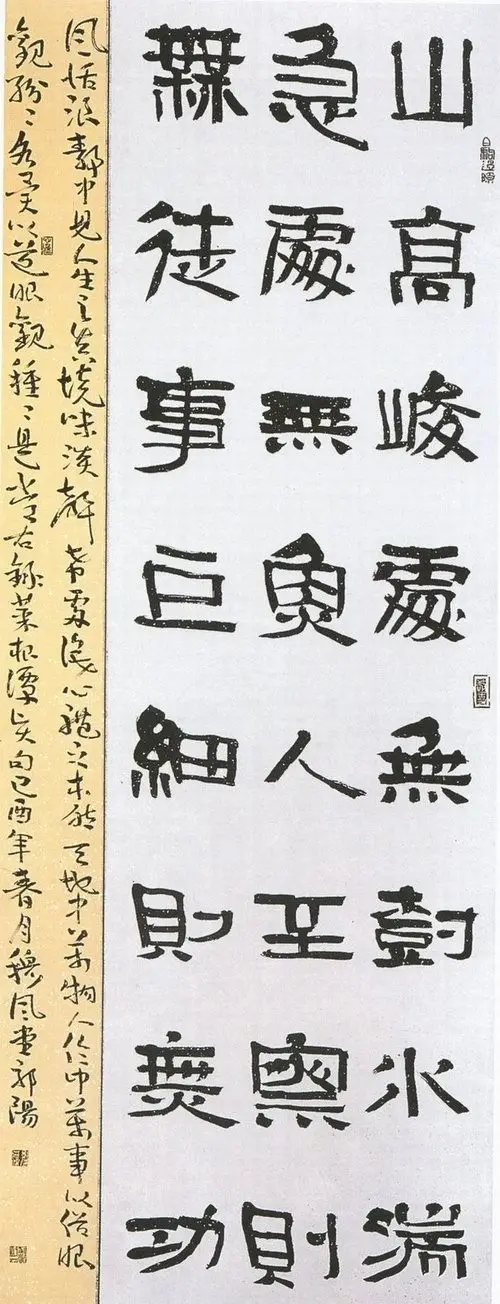 山高峻處無尌水湍
急處無魚人至則
無徒事巨細則無功
風恬浪靜中見人生之真境味淡聲希處識心體之本然天地中萬物人倫中萬事以俗眼
觀紛〻各異以道眼觀種〻是常右錄菜根潭句己酉年春月穆風堂郭陽